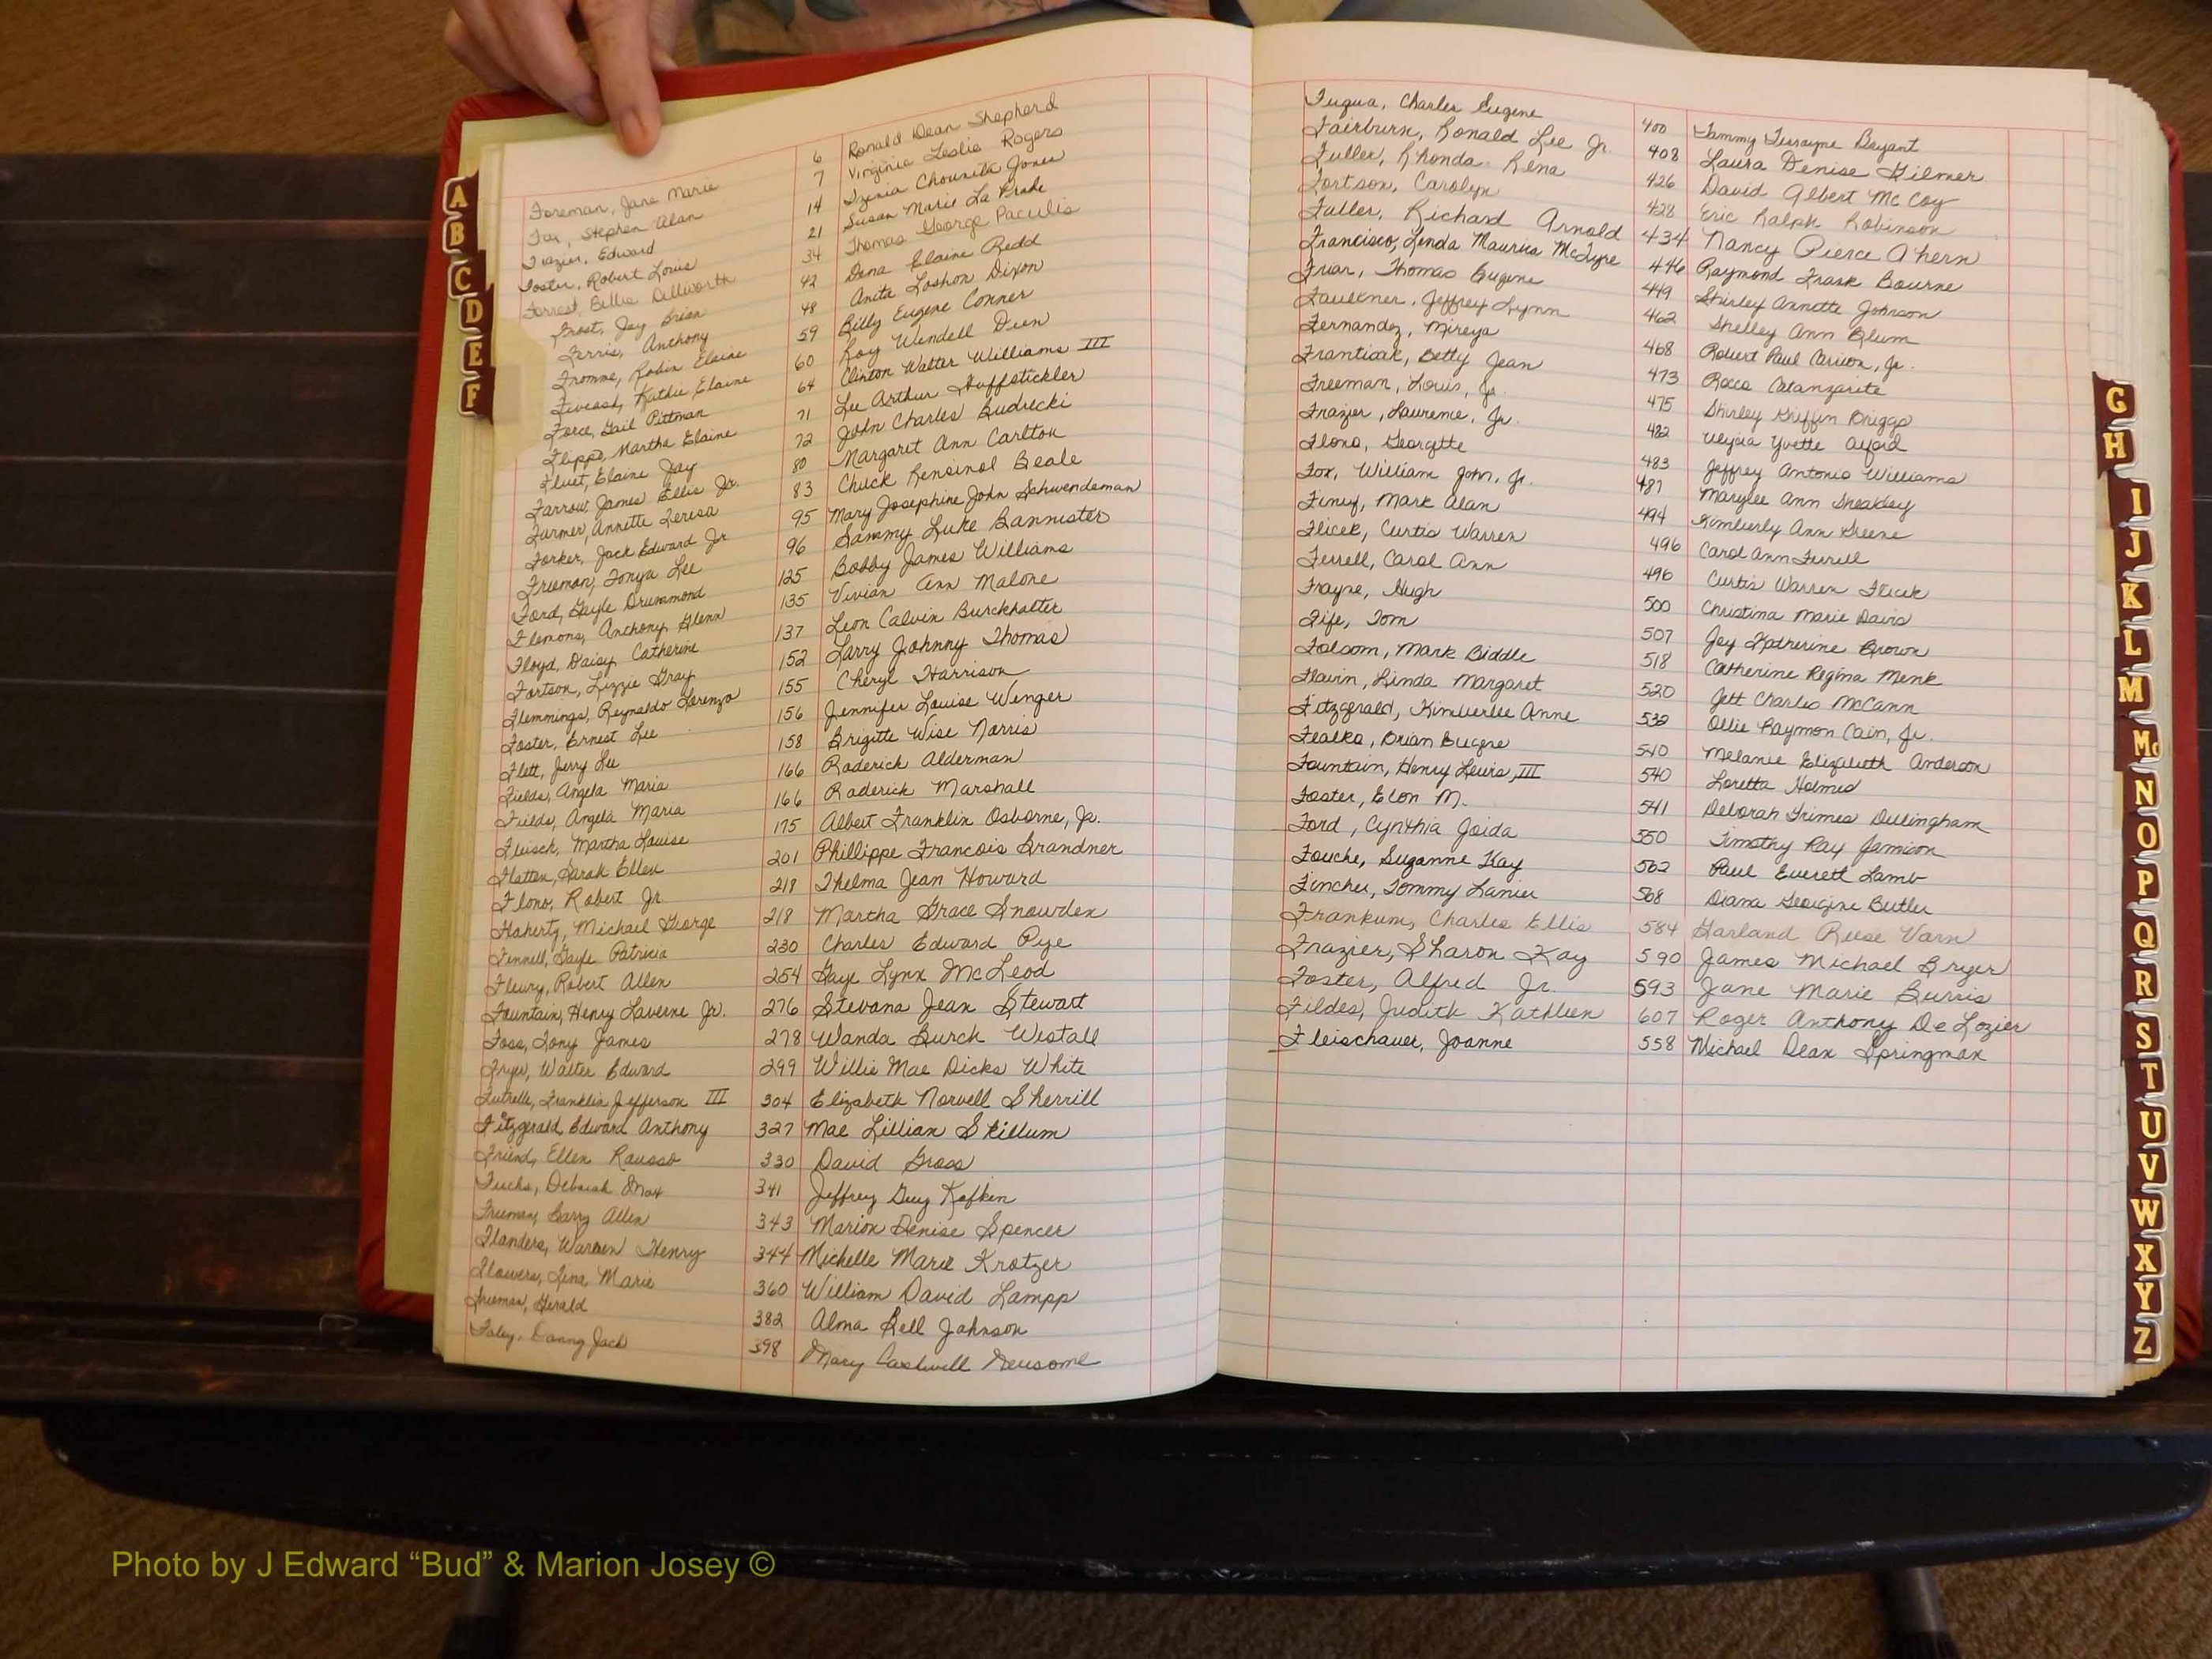 Foreman, Jane Marie 6 Ronald Dean Shepherd
Fox, Stephen Alan 7 Virginia Leslie Rogers
Frazier, Edward 14 Chounita Jones
Foster, Robert Louis 21 Susan Marie La Prade
Forrest, Billie Dillworth 34 Thomas George Paculis
Frost, Jay Brian 42 Dena Elaine Redd
Ferris, Anthony 48 Anita Loshon Dixon
Fromme, Robin Elaine 59 Billy Eugene Conner
Fiveash, Kathie Elaine 60 Roy Wendell Deen
Force, Gail Pittman 64 Clinton Walter Williams III
Flipps, Martha Elaine 71 Lee Arthur Huffstickler
Fluet, Elaine Jay 72 John Charles Budrecki
Farrow, James Ellis Jr. 80 Margaret Ann Carlton
Farmer, Annette Teresa 83 Chuck Rensinol Beale
Forker, Jack Edward Jr 95 Mary Josephine John Schwendeman
Freeman, Tonya Lee 96 Sammy Luke Bannister
Ford, Gayle Drummond 125 Bobby James Williams
Flemons, Anthony Glenn 135 Vivian Ann Malone
Floyd, Daisy Catherine 137 Leon Calvin Burckhalter
Fortson, Lizzie Gray 152 Larry Johnny Thomas
Flemmings, Reynaldo Lorenzo 155 Cheryl Harrison
Foster, Ernest Lee 156 Jennifer Louise Winger
Flett, Jerry Lee 158 Brigitte Wise Norris
Fields, Angela Maria 166 Roderick Alderman
Fields, Angela Maria 166 Roderick Marshall
Fleisch, Martha Louise 175 Albert Franklin Osborne, Jr.
Flatten, Sarah Ellen 201 Phillippe Francois Brandner
Flono, Robert Jr 218 Thelma Jean Howard
Flahertz, Michael George 218 Martha Grace Snowden
Fennell, Gayle Patricia 230 Charles Edward Pye
Fleury, Robert Allen 254 Gaye Lynn McLeod
Fountain, Henry Laverne Jr. 276 Stevana Jean Stewart
Foss, Tony James 278 Wanda Burch Westall
Fryer, Walter Edward 299 Willie Mae Dicks White
Futrelle, Franklin Jefferson III 304 Elizabeth Norvell Sherrill
Fitzgerald, Edward Anthony 327 Mae Lillian Skillum
Friend, Ellen Rausso 330 David Gross
Fuchs, Deborah 341 Jeffrey Guy Kofkin
Freeman, Barry Allen 343 Marion Denise Spencer
Flanders, Warren Henry 344 Michelle Marie Krotzer
Flowers, Tina Marie 360 William David Lampp
Freeman, Gerald 382 Alma Bell Johnson
Foley, Danny Jack 398 Mary Newsome
Fuqua, Charles Eugene 400 Tammy Bryant
Fairburn, Ronald Lee Jr. 408 Laura Denise Gilmer
Fuller, Rhonda Rena 426 David Albert McCoy
Fortson, Carolyn 428 Eric Ralph Robinson
Fuller, Richard Arnold 434 Nancy Pierce Ahern
Francisco, Linda Maurice McIntyre 446 Raymond Frank Bourne
Friar, Thomas Eugene 449 Shirley Annette Johnson
Faulkner, Jeffrey Lynn 462 Shelley Ann Blum
Fernandez, Mireya 468 Robert Paul Jr.
Betty Jean 473 Rocco Catanzarite
Freeman, Louis, Jr. 475 Shirley Griffin Briggs
Frazier, Laurence, Jr. 482 Yvette Alford
Flono, Georgette 483 Jeffrey Antonio Williams
Fox, William John, Jr. 487 Marylee Ann Sheakley
Finey, Mark Alan 494 Kimberly Ann Greene
Flicek, Curtis Warren 496 Carol Ann Ferrell
Ferrell, Carol Ann 496 Curtis Warren Flicek
Frayne, Hugh 500 Christina Marie Davis
Fife, Tom 507 Joy Katherine Brown
Folsom, Mark Biddle 518 Catherine Regina Menk
Flavin, Linda Margaret 520 Jeff Charles McCann
Fitzgerald, Kimberlee Anne 532 Ollie Raymon Cain, Jr.
Fialko, Brian Eugene 540 Melanie Elizabeth Anderson
Fountain, Henry Lewis, III 540 Loretta Holmes
Foster, Elon M. 541 Deborah Grimes Dillingham
Ford, Cynthia Joida 550 Timothy Ray Jamison
Fouche, Suzanne Kay 562 Paul Everett Lamb
Fincher, Tommy Lanier 568 Diana Georgine Butler
Frankum, Charles Ellis 584 Garland Reese Varn
Frazier, Sharon Kay 590 James Michael Bryer
Foster, Alfred Jr. 593 Jane Marie Burris
Fildes, Judith Kathleen 607 Roger Anthony DeLozier
Fleischauer, Joanne 558 Michael Dean Springman
A
B
C
D
E
F
G
H
I
J
K
L
M
Mc
N
O
P
Q
R
S
T
U
V
W
X
Y
Z
Photo by J Edward “Bud” & Marion Josey ©